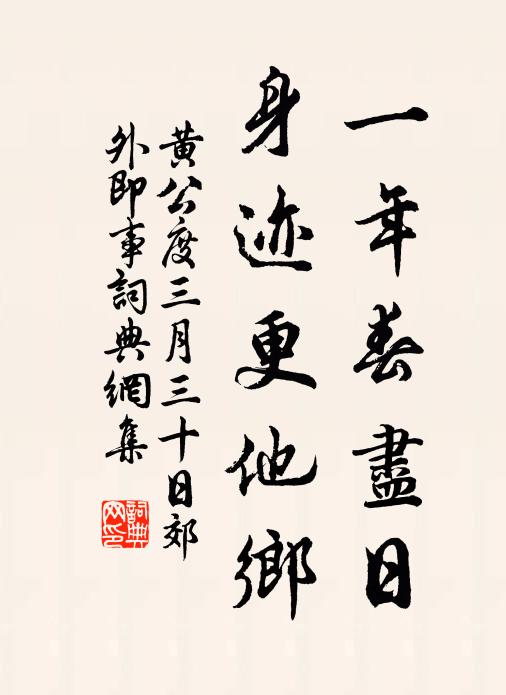 一年春盡日
身迹更他鄉
黃公度三月三十日郊
外即事詞典網集
詞典
网印